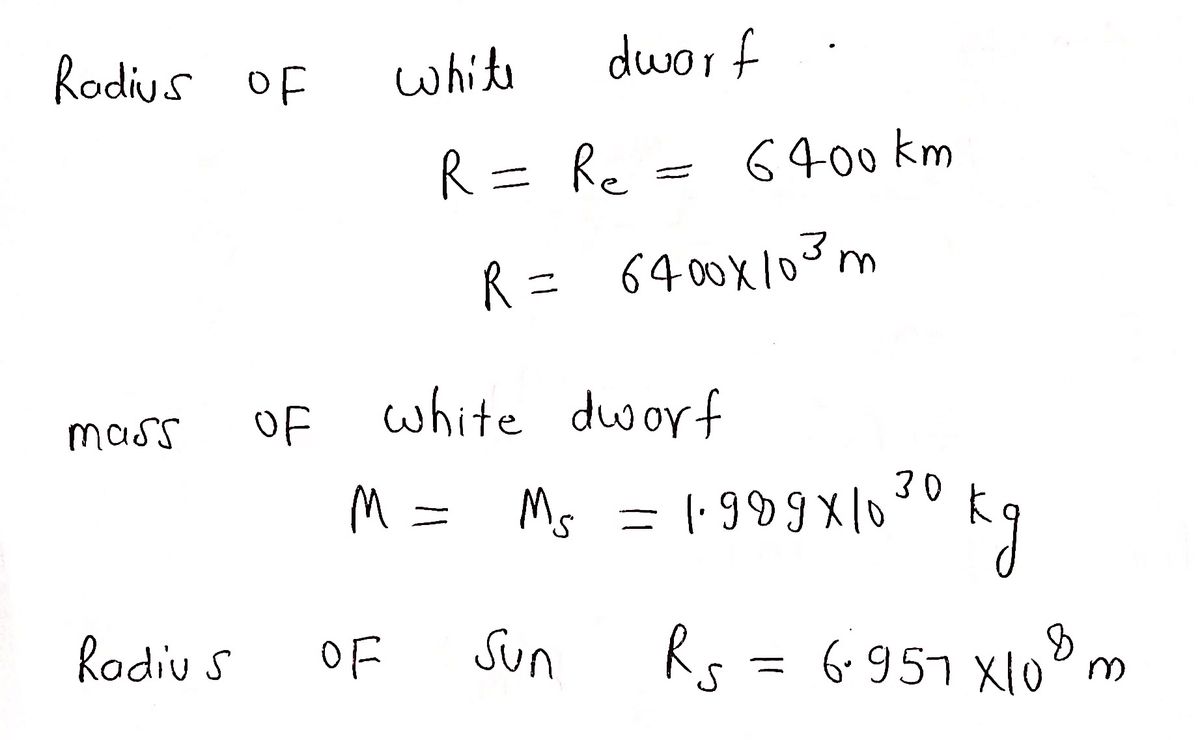 Radius OF white dworf.
R = Re = 6400 km
R = 6400X10³ m
mass OF white dworf
M = Ms = 1.989X10³⁰ kg
Radius OF Sun Rs = 6.957 X10⁸ m